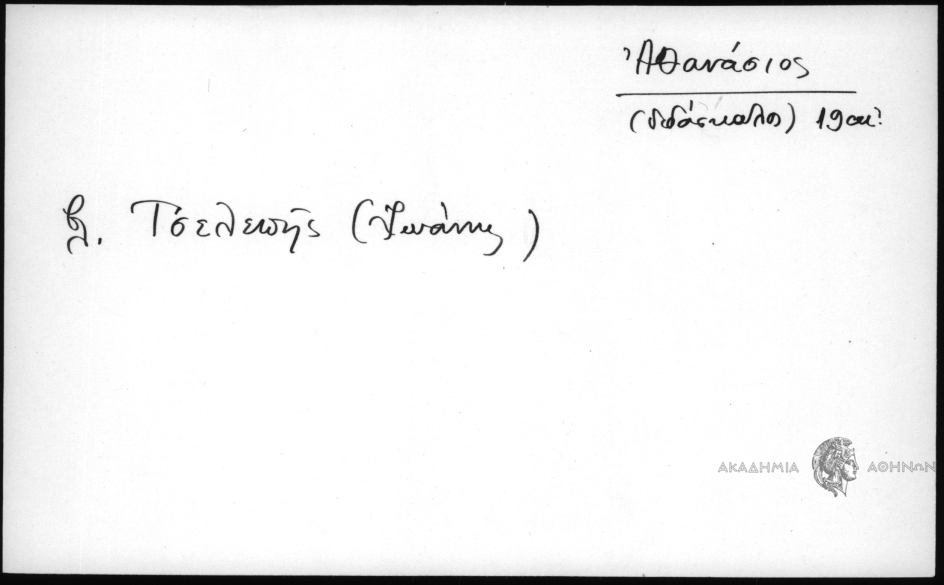 Ἀθανάσιος
(διδάσκαλος) 19 αι.
βλ. Τσελεπῆς (Ἰωάννης)
ΑΚΑΔΗΜΙΑ ΑΘΗΝΩΝ